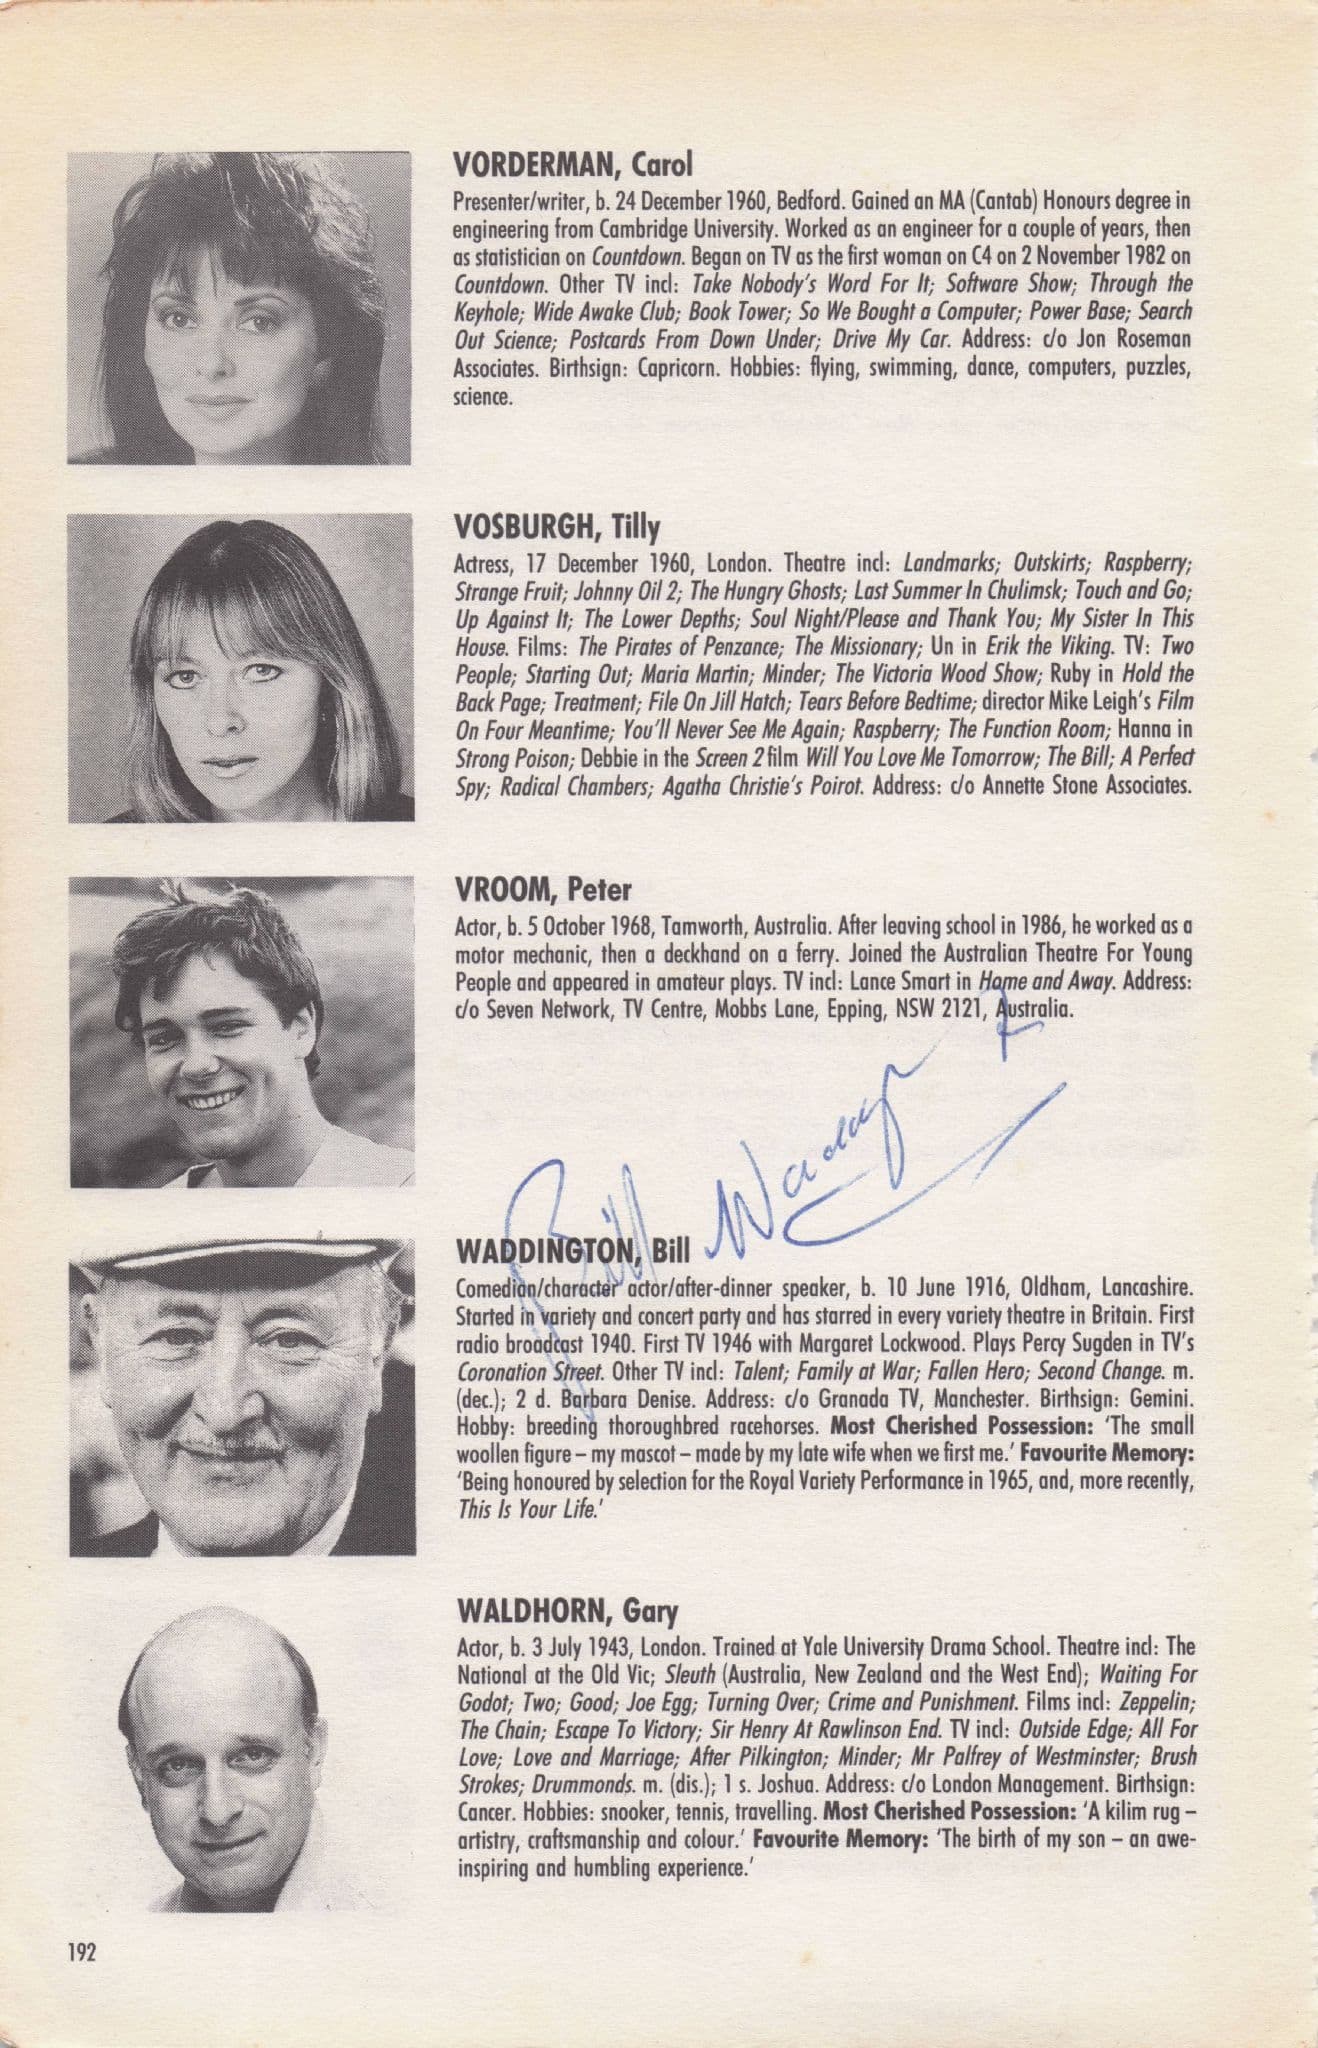 VORDERMAN, Carol
Presenter/writer, b. 24 December 1960, Bedford. Gained an MA (Cantab) Honours degree in
engineering from Cambridge University. Worked as an engineer for a couple of years, then
as statistician on Countdown. Began on TV as the first woman on C4 on 2 November 1982 on
Countdown. Other TV incl: Take Nobody's Word For It; Software Show; Through the
Keyhole; Wide Awake Club; Book Tower; So We Bought a Computer; Power Base; Search
Out Science; Postcards From Down Under; Drive My Car. Address: c/o Jon Roseman
Associates. Birthsign: Capricorn. Hobbies: flying, swimming, dance, computers, puzzles,
science.
VOSBURGH, Tilly
Actress, 17 December 1960, London. Theatre incl: Landmarks; Outskirts; Raspberry;
Strange Fruit; Johnny Oil 2; The Hungry Ghosts; Last Summer In Chulimsk; Touch and Go;
Up Against It; The Lower Depths; Soul Night/Please and Thank You; My Sister In This
House. Films: The Pirates of Penzance; The Missionary; Un in Erik the Viking. TV: Two
People; Starting Out; Maria Martin; Minder; The Victoria Wood Show; Ruby in Hold the
Back Page; Treatment; File On Jill Hatch; Tears Before Bedtime; director Mike Leigh's Film
On Four Meantime; You'll Never See Me Again; Raspberry; The Function Room; Hanna in
Strong Poison; Debbie in the Screen 2 film Will You Love Me Tomorrow; The Bill; A Perfect
Spy; Radical Chambers; Agatha Christie's Poirot. Address: c/o Annette Stone Associates.
VROOM, Peter
Actor, b. 5 October 1968, Tamworth, Australia. After leaving school in 1986, he worked as a
motor mechanic, then a deckhand on a ferry. Joined the Australian Theatre For Young
People and appeared in amateur plays. TV incl: Lance Smart in Home and Away. Address:
c/o Seven Network, TV Centre, Mobbs Lane, Epping, NSW 2121, Australia.
Bill
WADDINGTON, Bill
Comedian/character actor/after-dinner speaker, b. 10 June 1916, Oldham, Lancashire.
Started in variety and concert party and has starred in every variety theatre in Britain. First
radio broadcast 1940. First TV 1946 with Margaret Lockwood. Plays Percy Sugden in TV's
Coronation Street. Other TV incl: Talent; Family at War; Fallen Hero; Second Change. m.
(dec.); 2 d. Barbara Denise. Address: c/o Granada TV, Manchester. Birthsign: Gemini.
Hobby: breeding thoroughbred racehorses. Most Cherished Possession: 'The small
woollen figure – my mascot – made by my late wife when we first me.' Favourite Memory:
'Being honoured by selection for the Royal Variety Performance in 1965, and, more recently,
This Is Your Life.'
WALDHORN, Gary
Actor, b. 3 July 1943, London. Trained at Yale University Drama School. Theatre incl: The
National at the Old Vic; Sleuth (Australia, New Zealand and the West End); Waiting For
Godot; Two; Good; Joe Egg; Turning Over; Crime and Punishment. Films incl: Zeppelin;
The Chain; Escape To Victory; Sir Henry At Rawlinson End. TV incl: Outside Edge; All For
Love; Love and Marriage; After Pilkington; Minder; Mr Palfrey of Westminster; Brush
Strokes; Drummonds. m. (dis.); 1 s. Joshua. Address: c/o London Management. Birthsign:
Cancer. Hobbies: snooker, tennis, travelling. Most Cherished Possession: 'A kilim rug –
artistry, craftsmanship and colour.' Favourite Memory: 'The birth of my son – an awe-
inspiring and humbling experience.'
192